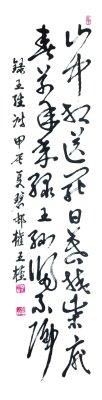 山中相送罷日暮掩柴扉
春草年年綠王孫歸不歸
錄王維詩甲辰夏邨權玉